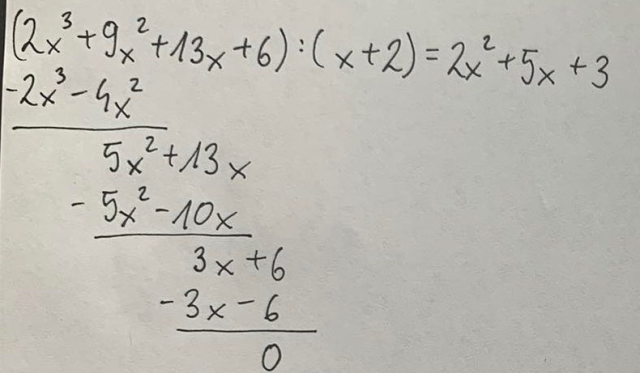 (2x³+9x²+13x+6):(x+2)=2x²+5x+3
-2x³-4x²
5x²+13x
-5x²-10x
3x+6
-3x-6
0